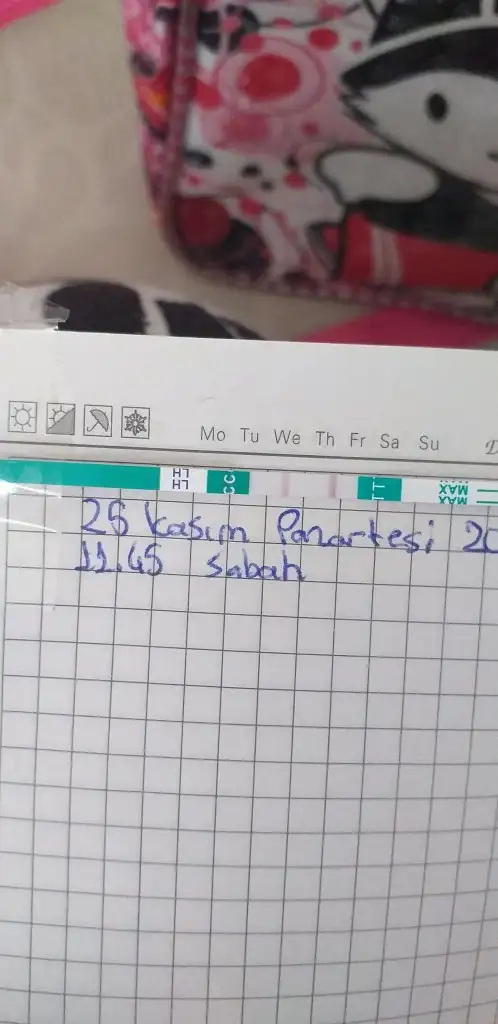 Mo Tu We Th Fr Sa Su
LH
LH
CC
TT
MAX
MAX
25 Kasım Pazartesi 20
11.45 sabah